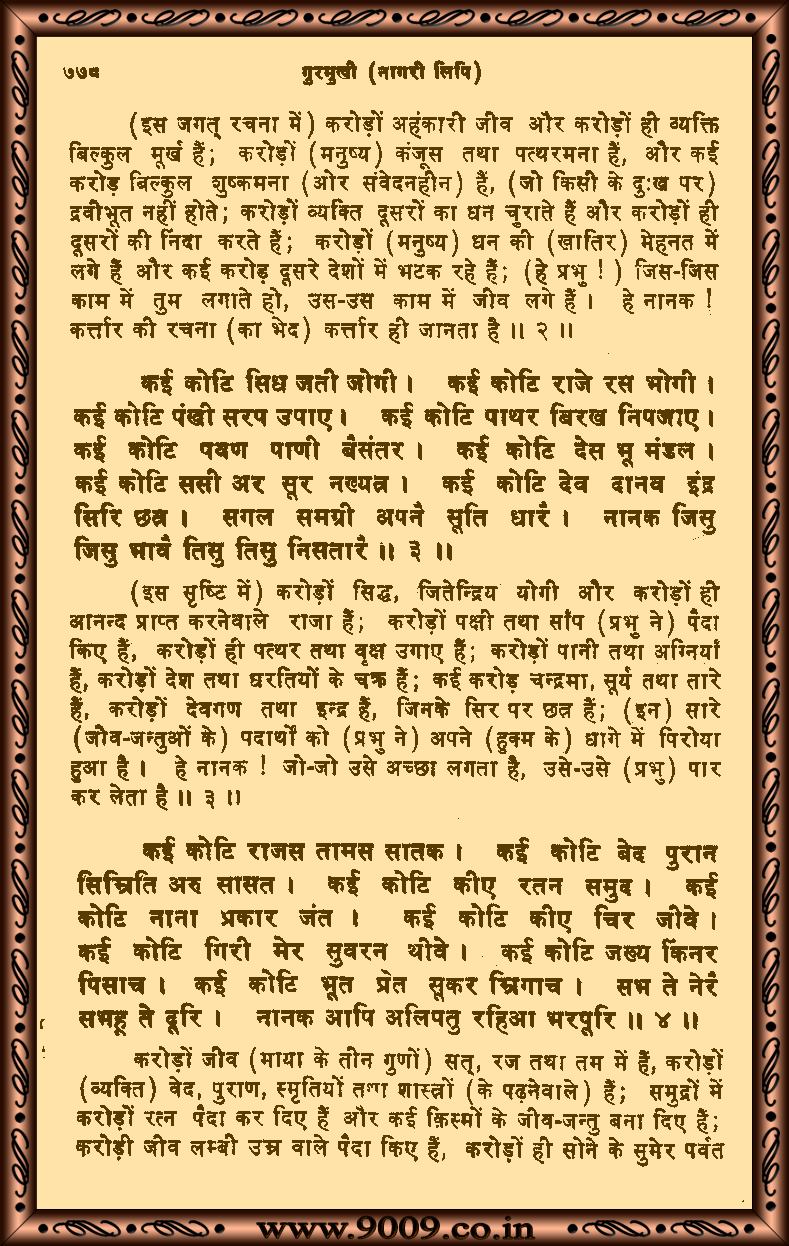 ७७८ गुरमुखी (नागरी लिपि)
(इस जगत् रचना में) करोड़ों अहंकारी जीव और करोड़ों ही व्यक्ति
बिल्कुल मूर्ख हैं; करोड़ों (मनुष्य) कंजूस तथा पत्थरमना हैं, और कई
करोड़ बिल्कुल शुष्कमना (ओर संवेदनहीन) हैं, (जो किसी के दुःख पर)
द्रवीभूत नहीं होते; करोड़ों व्यक्ति दूसरों का धन चुराते हैं और करोड़ों ही
दूसरों की निंदा करते हैं; करोड़ों (मनुष्य) धन की (खातिर) मेहनत में
लगे हैं और कई करोड़ दूसरे देशों में भटक रहे हैं; (हे प्रभु !) जिस-जिस
काम में तुम लगाते हो, उस-उस काम में जीव लगे हैं । हे नानक !
कर्त्तार की रचना (का भेद) कर्त्तार ही जानता है ॥ २ ॥
कई कोटि सिध जती जोगी । कई कोटि राजे रस भोगी ।
कई कोटि पंखी सरप उपाए । कई कोटि पाथर बिरख निपजाए ।
कई कोटि पवण पाणी बैसंतर । कई कोटि देस भू मंडल ।
कई कोटि ससी अर सूर नख्यत्र । कई कोटि देव दानव इंद्र
सिरि छत्र । सगल समग्री अपनै सूति धारै । नानक जिसु
जिसु भावै तिसु तिसु निसतारै ॥ ३ ॥
(इस सृष्टि में) करोड़ों सिद्ध, जितेन्द्रिय योगी और करोड़ों ही
आनन्द प्राप्त करनेवाले राजा हैं; करोड़ों पक्षी तथा साँप (प्रभु ने) पैदा
किए हैं, करोड़ों ही पत्थर तथा वृक्ष उगाए हैं; करोड़ों पानी तथा अग्नियाँ
हैं, करोड़ों देश तथा धरतियों के चक्र हैं; कई करोड़ चन्द्रमा, सूर्य तथा तारे
हैं, करोड़ों देवगण तथा इन्द्र हैं, जिनके सिर पर छत्र हैं; (इन) सारे
(जीव-जन्तुओं के) पदार्थों को (प्रभु ने) अपने (हुक्म के) धागे में पिरोया
हुआ है । हे नानक ! जो-जो उसे अच्छा लगता है, उसे-उसे (प्रभु) पार
कर लेता है ॥ ३ ॥
कई कोटि राजस तामस सातक । कई कोटि बेद पुरान
सिम्रिति अरु सासत । कई कोटि कीए रतन समुद । कई
कोटि नाना प्रकार जंत । कई कोटि कीए चिर जीवे ।
कई कोटि गिरी मेर सुवरन थीवे । कई कोटि जख्य किंनर
पिसाच । कई कोटि भूत प्रेत सूकर म्रिगाच । सभ ते नेरै
सभहू ते दूरि । नानक आपि अलिपतु रहिआ भरपूरि ॥ ४ ॥
करोड़ों जीव (माया के तीन गुणों) सत्, रज तथा तम में हैं, करोड़ों
(व्यक्ति) वेद, पुराण, स्मृतियों तथा शास्त्रों (के पढ़नेवाले) हैं; समुद्रों में
करोड़ों रत्न पैदा कर दिए हैं और कई क़िस्मों के जीव-जन्तु बना दिए हैं;
करोड़ी जीव लम्बी उम्र वाले पैदा किए हैं, करोड़ों ही सोने के सुमेर पर्वत
www.9009.co.in